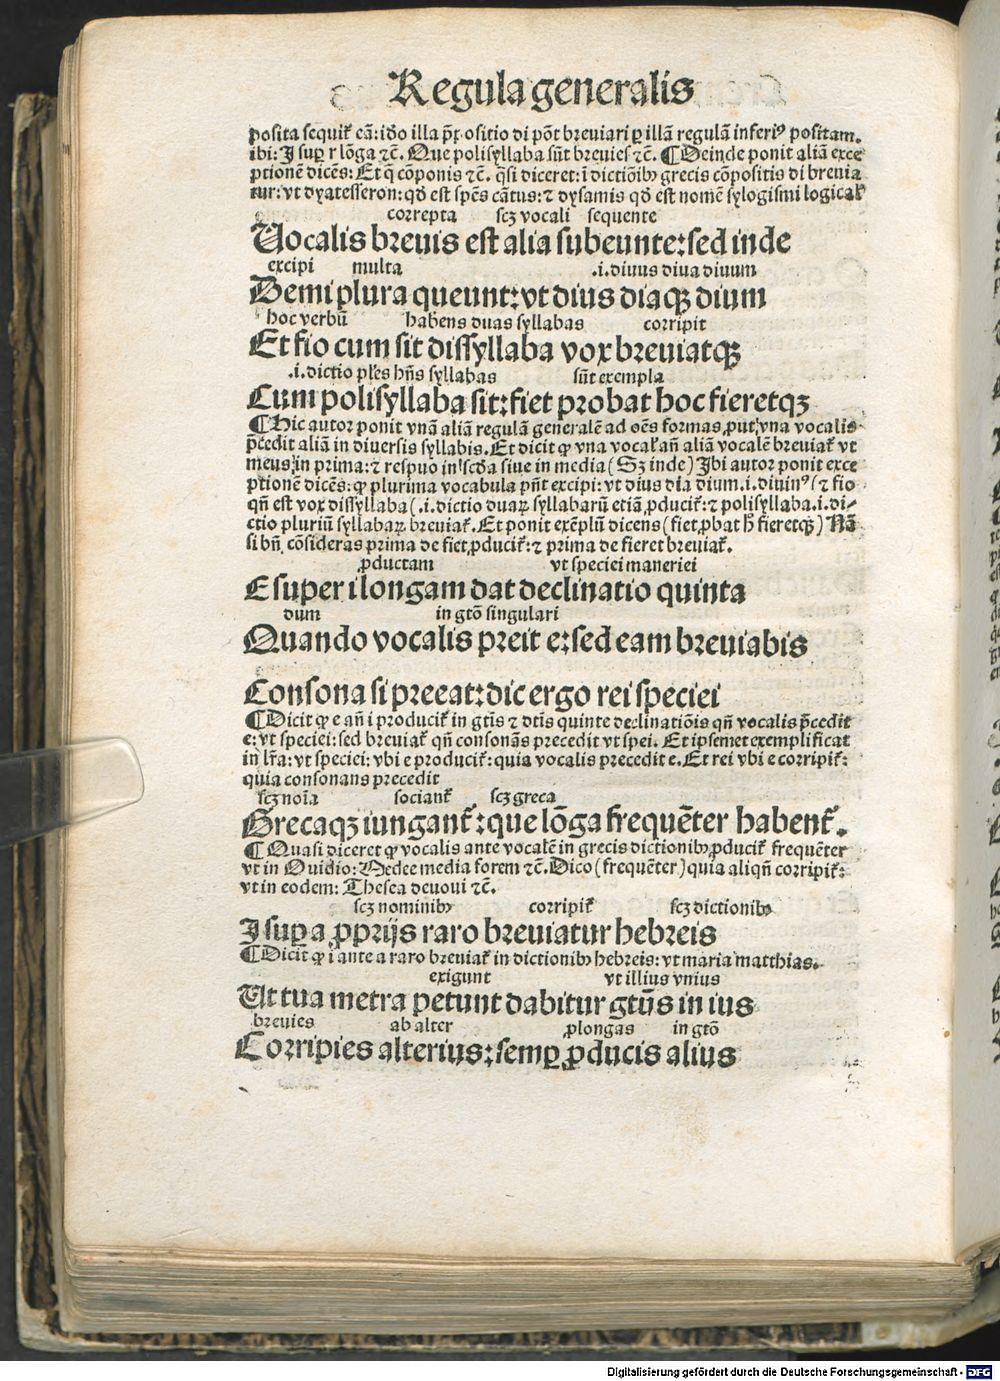 Regula generalis
posita sequit᷑ eā: iđo illa p̄positio di pōt breuiari ꝑ illā regulā inferiꝰ positam.
ibi: I suꝑ r lōga ⁊c̄. Que polisyllaba sūt breuies ⁊c̄. ¶ Deinde ponit aliā exce
ptionē dicēs: Et q̄ cōponis ⁊c̄. q̄si diceret: ī dictiōibꝫ grecis cōpositis di breuia
tur: vt dyatesseron: qđ est spēs cātus: ⁊ dysamis qđ est nomē sylogismi logical᷑
correpta scꝫ vocali sequente
Vocalis breuis est alia subeunte: sed inde
excipi multa .i. diuus diua diuum
Demi plura queunt: vt dius diaqꝫ dium
hoc verbū habens duas syllabas corripit
Et fio cum sit dissyllaba vox breuiatqꝫ
.i. dictio pl̄es hn̄s syllabas sūt exempla
Cum polisyllaba sit: fiet probat hoc fieretqꝫ
¶ Hic autor ponit vnā aliā regulā generalē ad oēs formas, put vna vocalis
p̄cedit aliā in diuersis syllabis. Et dicit ꝙ vna vocal᷑ an̄ aliā vocalē breuiat᷑ vt
meus in prima: ⁊ respuo in scđa siue in media (Sꝫ inde) Ibi autor ponit exce
ptionē dicēs: ꝙ plurima vocabula pn̄t excipi: vt dius dia dium .i. diuinꝰ (⁊ fio
qn̄ est vox dissyllaba (.i. dictio duaꝝ syllabarū etiā ꝓducit᷑: ⁊ polisyllaba .i. di-
ctio pluriū syllabaꝝ breuiat᷑. Et ponit exēplū dicens (fiet ꝓbat h̄ fieretqꝫ) Nā
si bn̄ cōsideras prima de fiet ꝓducit᷑: ⁊ prima de fieret breuiat᷑.
ꝓductam vt speciei maneriei
E super i longam dat declinatio quinta
dum in gtō singulari
Quando vocalis preit e: sed eam breuiabis
Consona si preeat: dic ergo rei speciei
¶ Dicit ꝙ e an̄ i producit᷑ in gtīs ⁊ dtīs quinte declinatiōis qn̄ vocalis p̄cedit
e: vt speciei: sed breuiat᷑ qn̄ consonās precedit vt spei. Et ipsemet exemplificat
in lr̄a: vt speciei: vbi e producit᷑: quia vocalis precedit e. Et rei vbi e corripit᷑:
quia consonans precedit
scꝫ noīa sociant᷑ scꝫ greca
Grecaqꝫ iungant᷑: que lōga frequēter habent᷑.
¶ Quasi diceret ꝙ vocalis ante vocalē in grecis dictionibꝫ ꝓducit᷑ frequēter
vt in Ouidio: Medee media forem ⁊c̄. Dico (frequēter) quia aliqn̄ corripit᷑:
vt in eodem: Thesea deuoui ⁊c̄.
scꝫ nominibꝫ corripit᷑ scꝫ dictionibꝫ
I suꝑ a ꝓprijs raro breuiatur hebreis
¶ Dicit ꝙ i ante a raro breuiat᷑ in dictionibꝫ hebreis: vt maria matthias.
exigunt vt illius vnius
Ut tua metra petunt dabitur gtūs in ius
breuies ab alter ꝓlongas in gtō
Corripies alterius: semꝑ ꝓducis alius
Digitalisierung gefördert durch die Deutsche Forschungsgemeinschaft - DFG